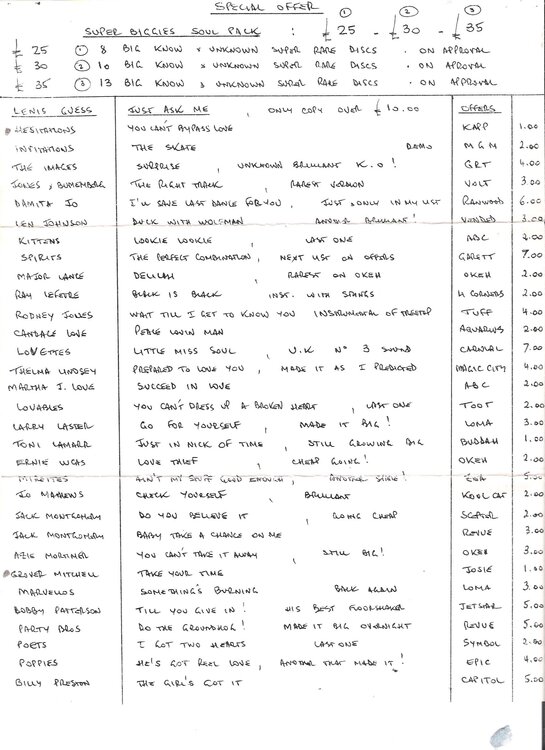 SPECIAL OFFER
① ② ③
SUPER BIGGIES SOUL PACK : £25 - £30 - £35
£ 25 ① 8 BIG KNOW & UNKNOWN SUPER RARE DISCS . ON APPROVAL
£ 30 ② 10 BIG KNOW & UNKNOWN SUPER RARE DISCS . ON APPROVAL
£ 35 ③ 13 BIG KNOW & UNKNOWN SUPER RARE DISCS . ON APPROVAL
LENIS GUESS JUST ASK ME , ONLY COPY OVER £10.00 OFFERS
HESITATIONS YOU CAN'T BYPASS LOVE KAPP 1.00
INVITATIONS THE SKATE DEMO MGM 2.00
THE IMAGES SURPRISE , UNKNOWN BRILLIANT K.O! GRT 4.00
JONES & BLUMENBERG THE RIGHT TRACK , RAREST VERSION VOLT 3.00
DAMITA JO I'LL SAVE LAST DANCE FOR YOU , JUST & ONLY IN MY LIST RANWOOD 6.00
LEN JOHNSON DUCK WITH WOLFMAN ANOTHER BRILLIANT! 3.00
KITTENS LOOKIE LOOKIE , LAST ONE ABC 2.00
SPIRITS THE PERFECT COMBINATION , NEXT LIST ON OFFERS GARETT 7.00
MAJOR LANCE DELILAH , RAREST ON OKEH OKEH 2.00
RAY LEFEVRE BLACK IS BLACK INST. WITH STRINGS 4 CORNERS 2.00
RODNEY JONES WAIT TILL I GET TO KNOW YOU INSTRUMENTAL OF TREETOP TUFF 4.00
CANDACE LOVE PEACE LOVIN MAN AQUARIUS 2.00
LOVETTES LITTLE MISS SOUL , U.K Nº 3 SOUND CARNIVAL 7.00
THELMA LINDSEY PREPARED TO LOVE YOU , MADE IT AS I PREDICTED MAGIC CITY 4.00
MARTHA J. LOVE SUCCEED IN LOVE ABC 2.00
LOVABLES YOU CAN'T DRESS UP A BROKEN HEART , LAST ONE TOOT 2.00
LARRY LASTER GO FOR YOURSELF , MADE IT BIG! LOMA 3.00
TONI LAMARR JUST IN NICK OF TIME , STILL GROWING BIG BUDDAH 1.00
ERNIE LUCAS LOVE THIEF , CHEAP GOING! OKEH 2.00
AIN'T MY STUFF GOOD ENOUGH , ANOTHER 5.00
JO MATHEWS CHECK YOURSELF , BRILLIANT KOOL CAT 2.00
JACK MONTGOMERY DO YOU BELIEVE IT , GOING CHEAP SCEPTER 2.00
JACK MONTGOMERY BABY TAKE A CHANCE ON ME REVUE 3.00
AZIE MORTIMER YOU CAN'T TAKE IT AWAY , STILL BIG! OKEH 3.00
GROVER MITCHELL TAKE YOUR TIME JOSIE 1.00
MARVELLOS SOMETHING'S BURNING BACK AGAIN LOMA 3.00
BOBBY PATTERSON TILL YOU GIVE IN! HIS BEST FLOORSHAKER JETSTAR 5.00
PARTY BROS DO THE GROUNDHOG! MADE IT BIG OVERNIGHT REVUE 5.00
POETS I GOT TWO HEARTS LAST ONE SYMBOL 2.00
POPPIES HE'S GOT REEL LOVE , ANOTHER THAT MADE IT! EPIC 4.00
BILLY PRESTON THE GIRL'S GOT IT CAPITOL 5.00